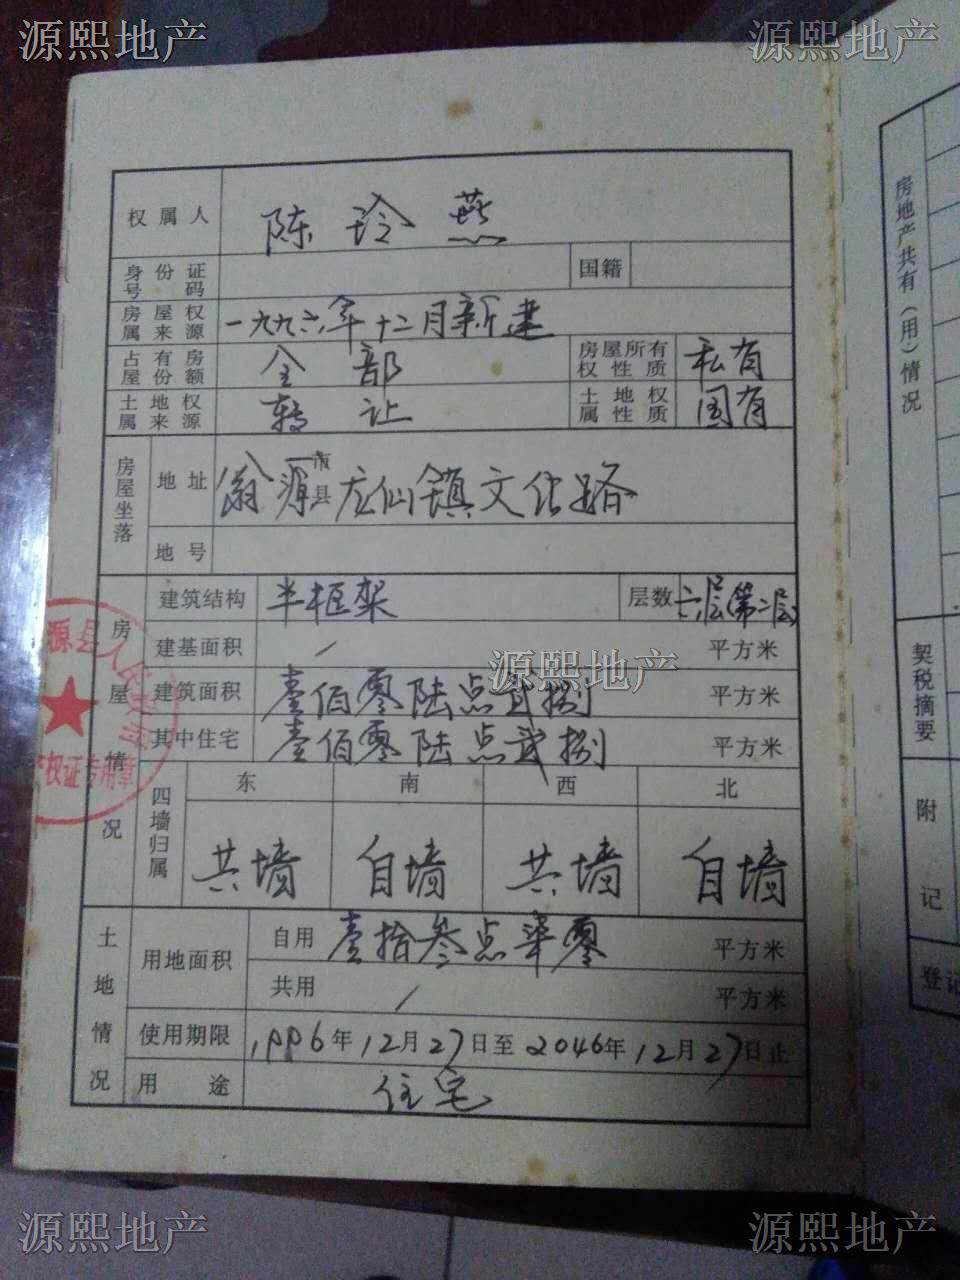 源熙地产 源熙地产
权属人 陈玲燕
身份证号码 国籍
房屋权属来源 一九九六年十二月新建
占有房屋份额 全部 房屋所有权性质 私有
土地权属来源 转让 土地权属性质 国有
房屋坐落 地址 翁源市县龙仙镇文化路
地号
房屋情况 建筑结构 半框架 层数 六层(第二层)
建基面积 / 平方米
源熙地产
建筑面积 壹佰零陆点贰捌 平方米
其中住宅 壹佰零陆点贰捌 平方米
四墙归属 东 南 西 北
共墙 自墙 共墙 自墙
土地情况 用地面积 自用 壹拾叁点柒零 平方米
共用 / 平方米
使用期限 1996年12月27日至2046年12月27日止
用途 住宅
源县人民政府
产权证专用章
房地产共有(用)情况
契税摘要
附记
登记
源熙地产 源熙地产